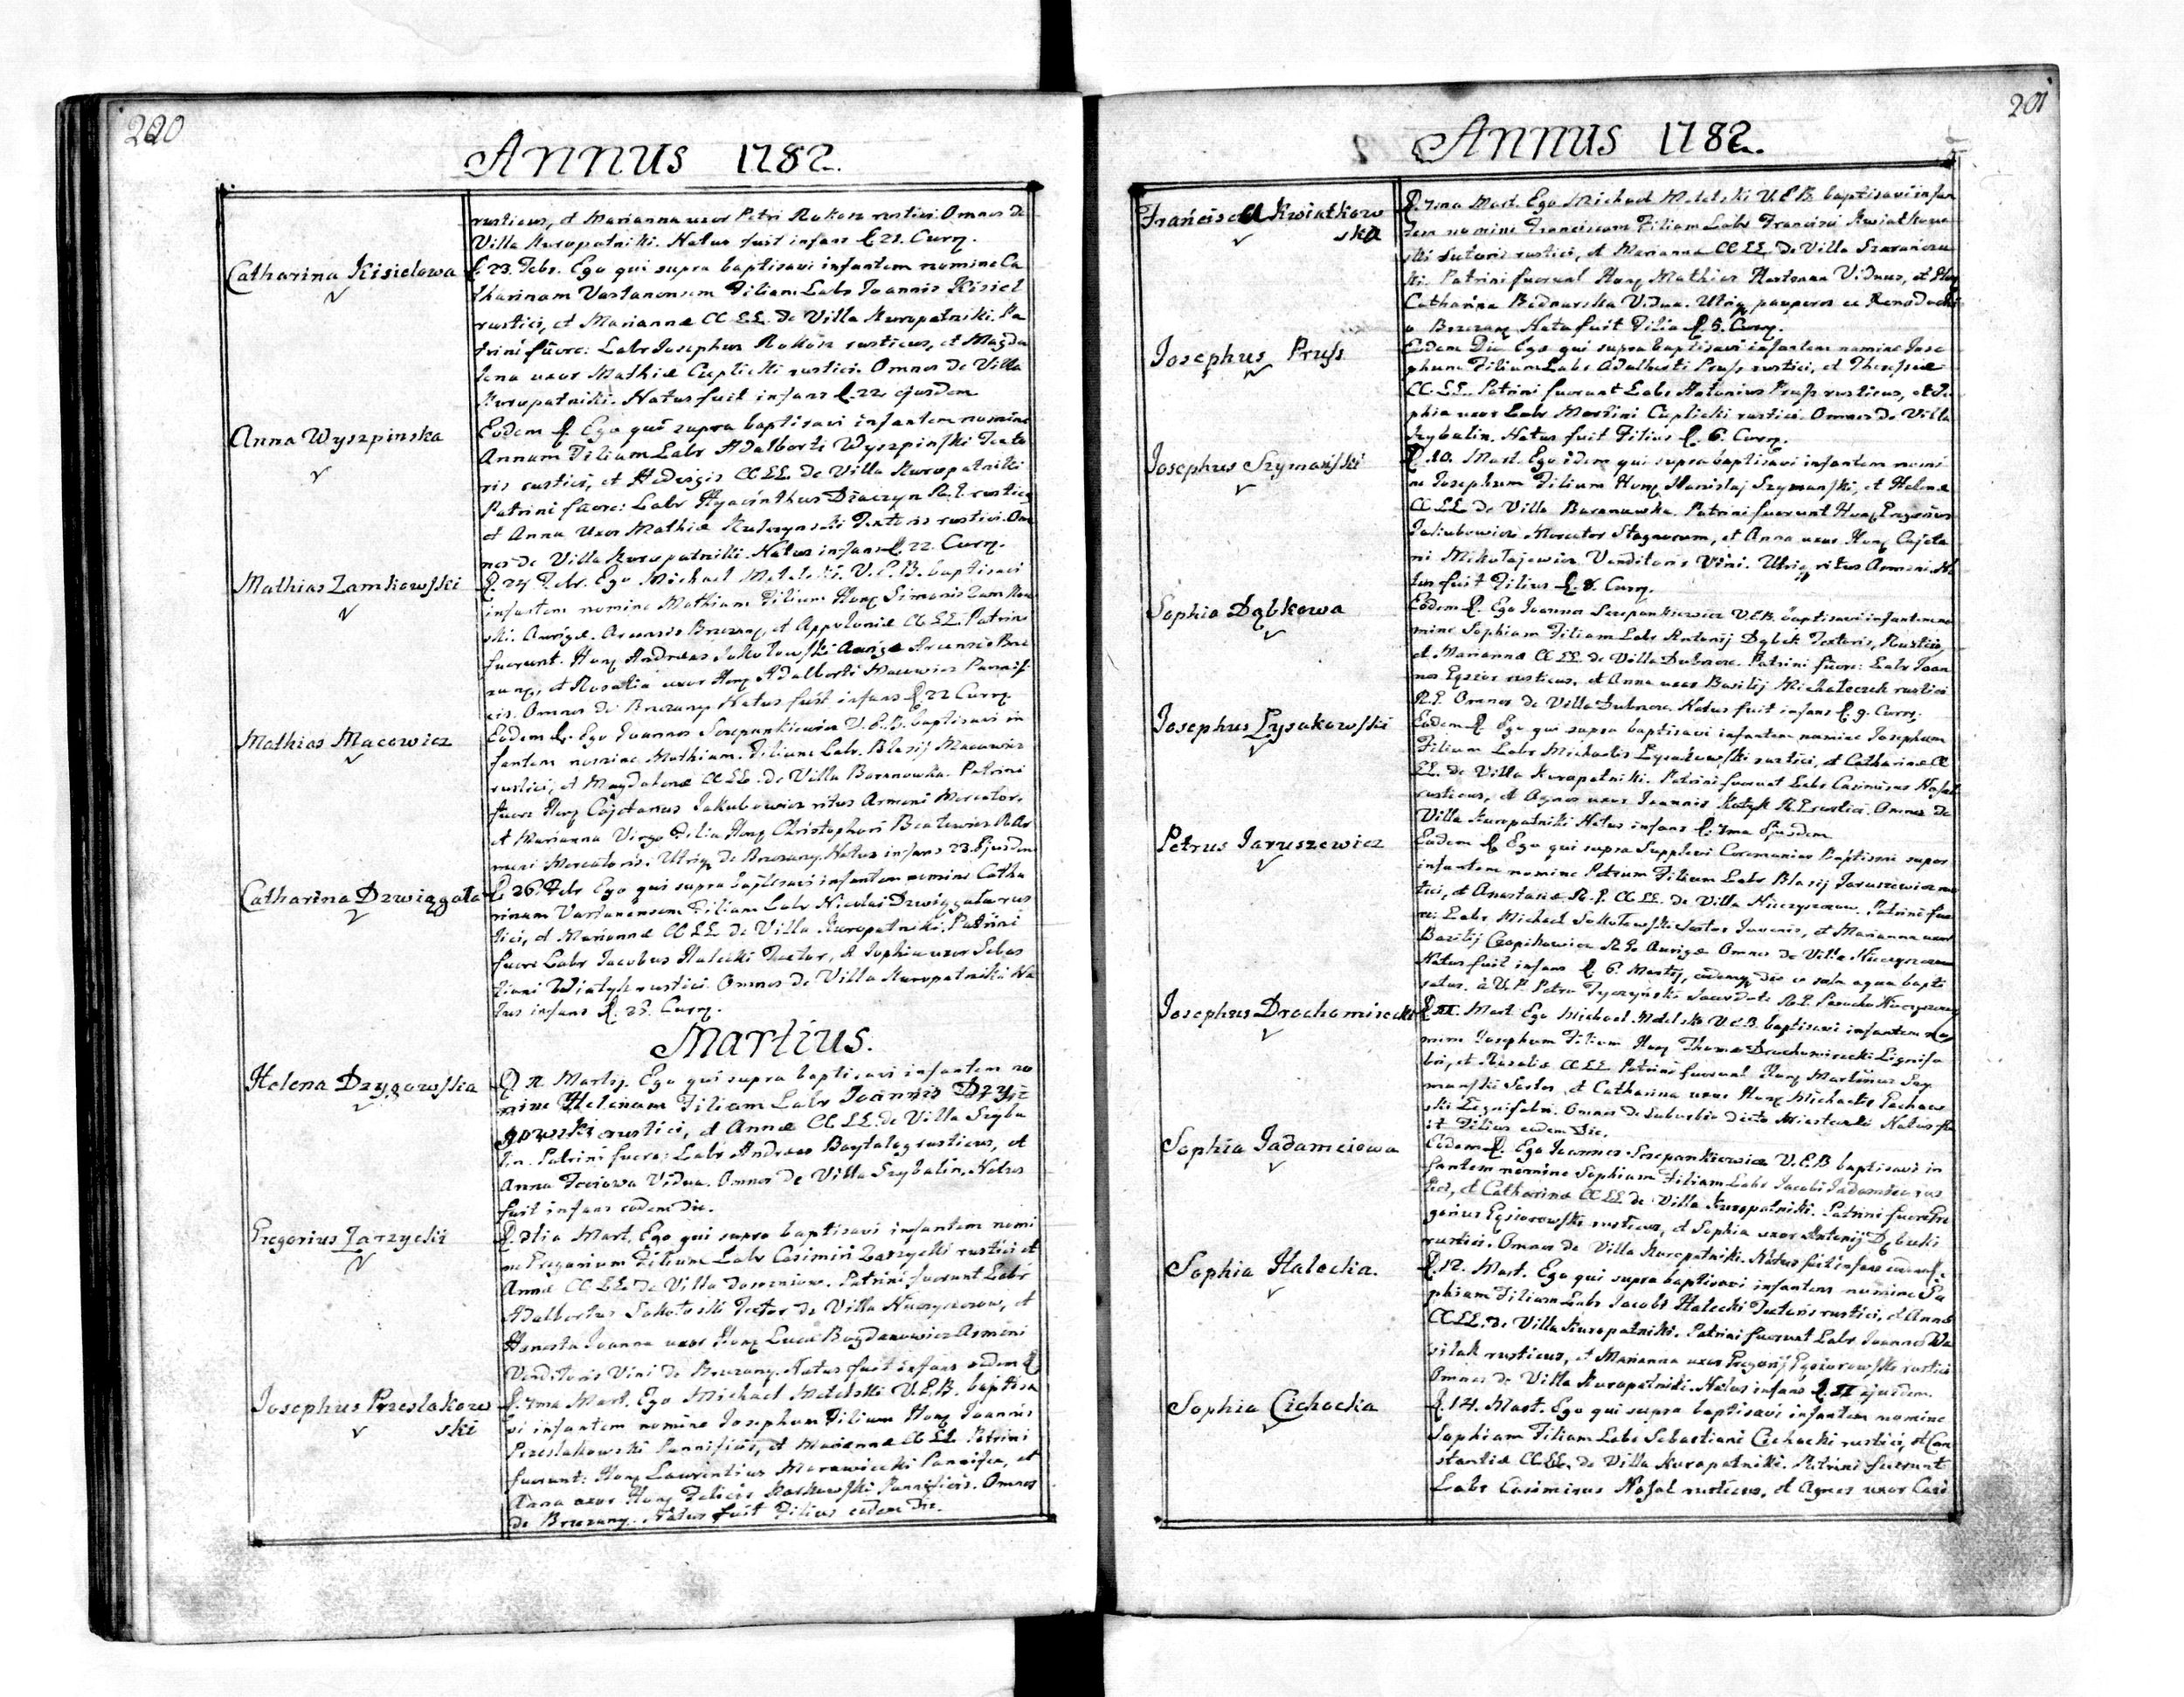 200
Annus 1782.
rusticus, et Marianna uxor Petri Rokosz rustici. Omnes de
Villa Kuropatniki. Natus fuit infans D. 21. Curr.
Catharina Kisielowa
D. 23. Febr. Ego qui supra baptisavi infantem nomine Ca
tharinam Filiam Labr Joannis Kisiel
rustici, et Mariannæ CC LL. de Villa Kuropatniki. Pa
trini fuere: Labr Josephus Rokosz rusticus, et Magda
lena uxor Mathiæ Cieplicki rustici. Omnes de Villa
Kuropatniki. Natus fuit infans D. 22 ejusdem
Anna Wyszpinska
Eodem D. Ego qui supra baptisavi infantem nomine
Annam Filiam Labr Adalberti Wyszpinski Texto
ris rustici, et Hedvigis CC LL. de Villa Kuropatniki
Patrini fuere: Labr Hyacinthus R. L. rusticus
et Anna Uxor Mathiæ Textoris rustici. Om
nes de Villa Kuropatniki. Natus infans D. 22. Curr.
Mathias Zamkowski
D. 24 Febr. Ego Michael Metelski V. E. B. baptisavi
infantem nomine Mathiam Filium Hon Simonis Zamkow
ski. Aurigæ. Arcensis Brzezan, et Appoloniæ CC LL. Patrini
fuerunt. Hon Andreas Sokołowski Auriga Arcensis Brze
zan, et Rosalia uxor Hon Adalberti Macewicz Pannifi
cis. Omnes de Brzezany. Natus fuit infans D. 22 Curr.
Mathias Macowicz
Eodem D. Ego Joannes Szczepankiewicz V. E. B. baptisavi in
fantem nomine Mathiam. Filium Labr. Blasij Macowicz
rustici, et Magdalenæ CC LL. de Villa Baranowka. Patrini
fuere Hon Cajetanus Jakubowicz ritus Armeni Mercator.
et Marianna Virgo Filia Hon Christophori R. Ar
meni Mercatoris. Utriq de Brzezany. Natus infans 23. Ejusdem
Catharina Dzwiągała
D. 26. Febr Ego qui supra baptisavi infantem nomine Catha
rinam Filiam Labr Nicolai Dzwiągała rus
tici, et Mariannæ CC LL de Villa Kuropatniki. Patrini
fuere Labr Jacobus Halecki Textor, et Sophia uxor Sebas
tiani Wiatyk rustici. Omnes de Villa Kuropatniki. Na
tus infans D. 25. Curr.
Martius.
Helena Dzygowska
D. II. Martij. Ego qui supra baptisavi infantem no
mine Helenam Filiam Labr Joannis Dzy
gowski rustici, et Annæ CC LL. de Villa Szyba
lin. Patrini fuere: Labr Andreas rusticus, et
Anna Vidua. Omnes de Villa Szybalin. Natus
fuit infans eodem Die.
Gregorius Zarzycki
D. 3tia Mart. Ego qui supra baptisavi infantem nomi
ne Gregorium Filium Labr Casimiri Zarzycki rustici et
Annæ CC LL. de Villa Patrini fuerunt Labr
Adalbertus Sokołoski Textor de Villa et
Honesta Joanna uxor Hon Lucæ Bogdanowicz Armeni
Venditoris Vini de Brzezany. Natus fuit infans eodem D.
Josephus Przeslakow
ski
D. 7ma Mart. Ego Michael Metelski V. E. B. baptisa
vi infantem nomine Josephum Filium Hon Joannis
Przeslakowski Pannificis, et Mariannæ CC LL Patrini
fuerunt: Hon Laurentius Morawiecki Pannifex, et
Anna uxor Hon Felicis Pannificis. Omnes
de Brzezany. Natus fuit Filius eodem Die.
201
Annus 1782.
Francisca Kwiatkow
ska
D. 7ma Mart. Ego Michael Metelski V. E. B. baptisavi infan
tem nomine Franciscam Filiam Labr Francisci Kwiatkow
ski Sutoris rustici, et Mariannæ CC LL. de Villa
ki. Patrini fuerunt Hon Mathias Viduus, et Hon
Catharina Bednarska Vidua. Utriq pauperes ex
Brzezan. Nata fuit Filia D. 5. Curr.
Josephus Pruss
Eodem Die Ego qui supra baptisavi infantem nomine Jose
phum Filium Labr Adalberti Pruss rustici, et Theresiæ
CC LL. Patrini fuerunt Labr Antonius Pruss rusticus, et So
phia uxor Labr Martini Cieplicki rustici. Omnes de Villa
Szybalin. Natus fuit Filius D. 6. Curr.
Josephus Szymański
D. 10. Mart. Ego idem qui supra baptisavi infantem nomi
ne Josephum Filium Hon Stanislaj Szymanski, et Helenæ
CC LL de Villa Baranowka. Patrini fuerunt Hon Gregorius
Jakubowicz Mercator et Anna uxor Hon Cajeta
ni Mikołajewicz Venditoris Vini. Utriq ritus Armeni. Na
tus fuit Filius D. 8. Curr.
Sophia Dąbkowa
Eodem D. Ego Joannes Szczepankiewicz V.E.B. baptisavi infantem no
mine Sophiam Filiam Labr Antonij Dąbek Textoris, Rustici,
et Mariannæ CC LL. de Villa Patrini fuere: Labr Joan
nes rusticus, et Anna uxor Basilij rustici
R. L. Omnes de Villa Natus fuit infans D. 9. Curr.
Josephus Łysakowski
Eodem D. Ego qui supra baptisavi infantem nomine Josephum
Filium Labr Michaelis Łysakowski rustici, et Catharinæ CC
LL. de Villa Kuropatniki. Patrini fuerunt Labr Casimirus Nosal
rusticus, et Agnes uxor Joannis R. L. rustici. Omnes de
Villa Kuropatniki. Natus infans D. 7ma Ejusdem
Petrus Jaruszewicz
Eodem D. Ego qui supra Supplevi Ceremonias Baptismi super
infantem nomine Petrum Filium Labr Blasij Jaruszewicz rus
tici, et Anastasiæ R. L. CC LL. de Villa Patrini fue
re: Labr Michael Sokołowski Sartor Juvenis, et Marianna uxor
Basilij R. L. Aurigæ Omnes de Villa
Natus fuit infans D. 6. Martij, eodemq die ex sola aqua bapti
satus. à V. P. Petro Tyczyński Sacerdote R. L. Parocho
Josephus Drochomirecki
D. II. Mart. Ego Michael Metelski V.E.B. baptisavi infantem no
mine Josephum Filium Hon Thomæ Drochomirecki Lignifa
bri, et Rosaliæ CC LL. Patrini fuerunt Hon Martinus Szy
manski Sartor, et Catharina uxor Hon Michaelis
ski Lignifabri. Omnes de Suburbio dicto Miasteczko Natus fu
it Filius eodem Die.
Sophia Jadamciowa
Eodem D. Ego Joannes Szczepankiewicz V.E.B baptisavi in
fantem nomine Sophiam Filiam Labr Jacobi rus
tici, et Catharinæ CC LL de Villa Kuropatniki. Patrini fuere Gre
gorius Gąsiorowski rusticus, et Sophia uxor Antonij
rustici. Omnes de Villa Kuropatniki. Natus fuit infans eadem D.
Sophia Halecka.
D. 12. Mart. Ego qui supra baptisavi infantem nomine So
phiam Filiam Labr Jacobi Halecki Textoris rustici, et Annæ
CC LL. de Villa Kuropatniki. Patrini fuerunt Labr Joannes Wa
silak rusticus, et Marianna uxor Gregorij Gąsiorowski rustici
Omnes de Villa Kuropatniki. Natus infans D. II ejusdem.
Sophia Cichocka
D. 14. Mart. Ego qui supra baptisavi infantem nomine
Sophiam Filiam Labr Sebastiani Cichocki rustici, et Con
stantiæ CC LL. de Villa Kuropatniki. Patrini fuerunt
Labr Casimirus Nosal rusticus, et Agnes uxor Casi